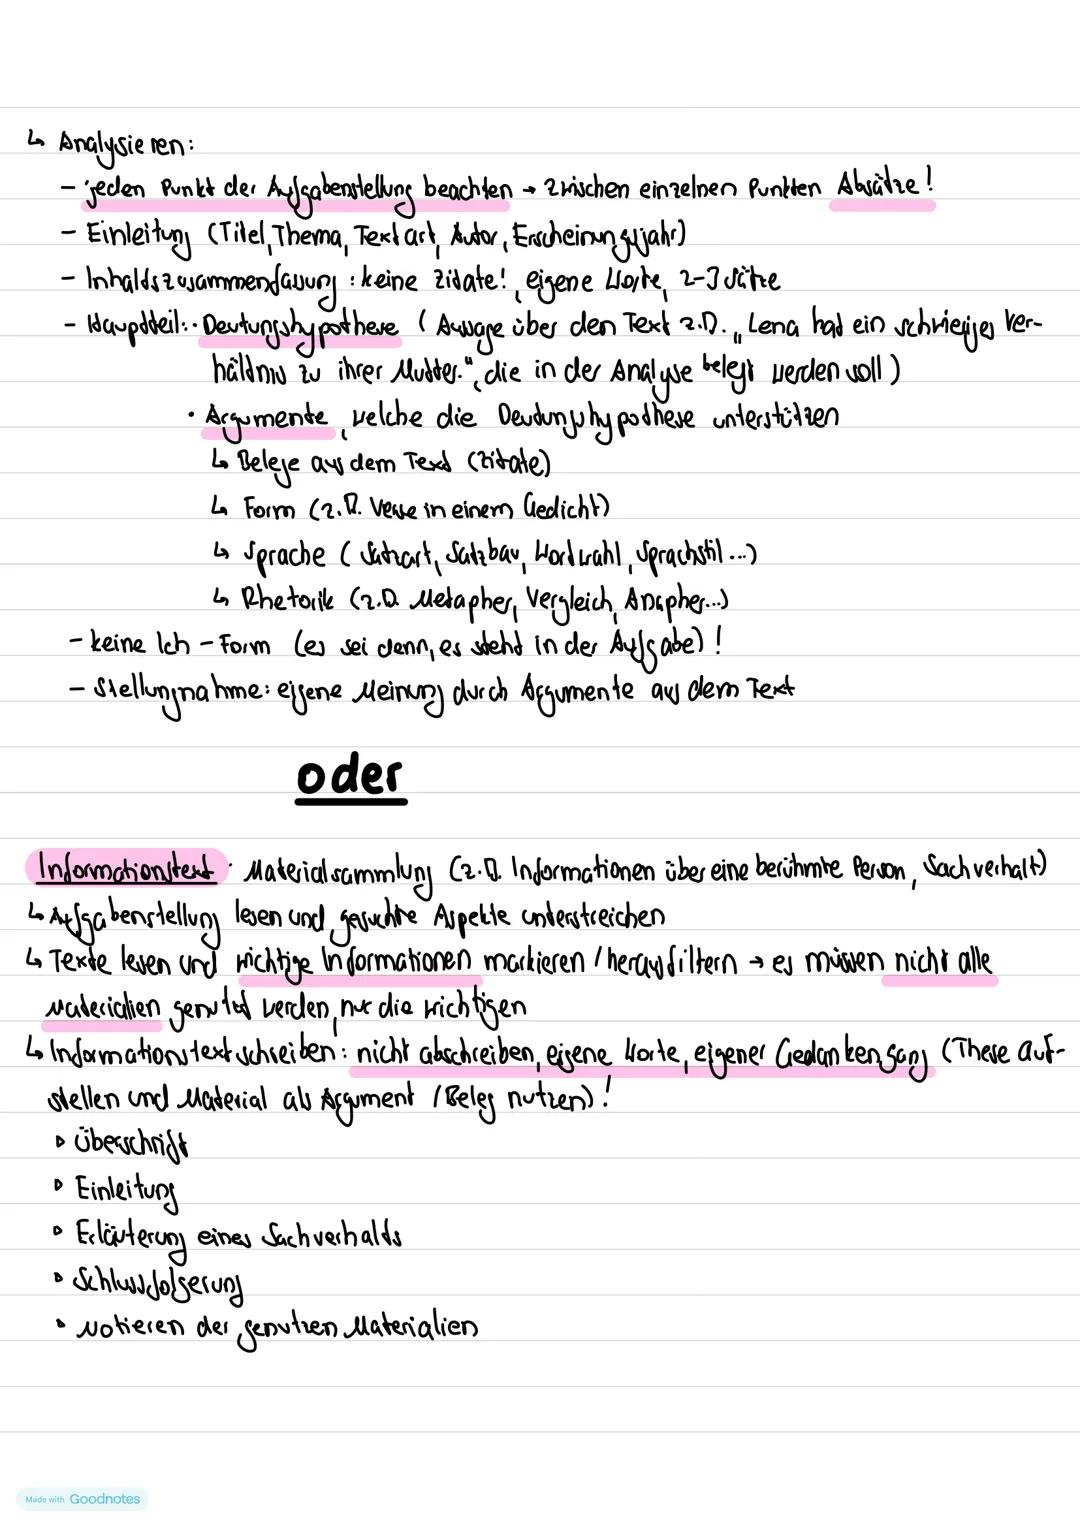 ↳ Analysieren:
- jeden Punkt der Aufgabenstellung beachten → zwischen einzelnen Punkten Absätze!
- Einleitung (Titel, Thema, Textart, Autor, Erscheinungsjahr)
- Inhaltszusammenfassung: keine Zitate!, eigene Worte, 2-3 Sätze
- Hauptteil: · Deutungshypothese (Aussage über den Text z.B. „Lena hat ein schwieriges Ver-
hältnis zu ihrer Mutter.", die in der Analyse belegt werden soll)
· Argumente, welche die Deutungshypothese unterstützen
↳ Belege aus dem Text (Zitate)
↳ Form (z.B. Verse in einem Gedicht)
↳ Sprache (Satzart, Satzbau, Wortwahl, Sprachstil...)
↳ Rhetorik (z.B. Metapher, Vergleich, Anapher...)
- keine Ich-Form (es sei denn, es steht in der Aufgabe)!
- Stellungnahme: eigene Meinung durch Argumente aus dem Text
oder
Informationstext: Materialsammlung (z.B. Informationen über eine berühmte Person, Sachverhalt)
↳ Aufgabenstellung lesen und gesuchte Aspekte unterstreichen
↳ Texte lesen und wichtige Informationen markieren / herausfiltern → es müssen nicht alle
Materialien genutzt werden, nur die wichtigen
↳ Informationstext schreiben: nicht abschreiben, eigene Worte, eigener Gedankengang (These auf-
stellen und Material als Argument / Beleg nutzen)!
▷ Überschrift
▷ Einleitung
▷ Erläuterung eines Sachverhalts
▷ Schlussfolgerung
▷ Notieren der genutzen Materialien
Made with Goodnotes